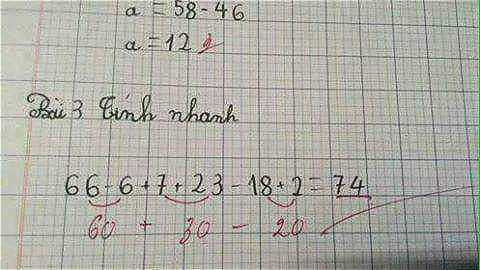 a = 58 - 46
a = 12
Bài 3 Tính nhanh
66 - 6 + 7 + 23 - 18 + 2 = 74
60 + 30 - 20